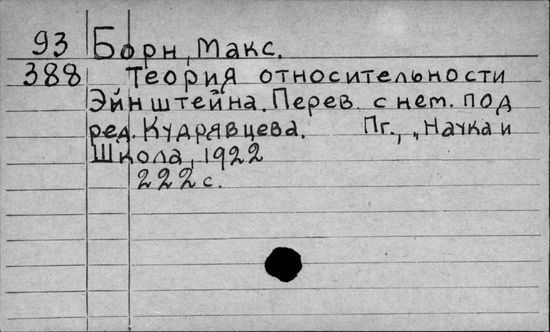 93 Борн, Макс.
388 Теория относительности
Эйнштейна. Перев. с нем. под
ред. Кудрявцева. Пг., „Наука и
Школа, 1922
222 с.